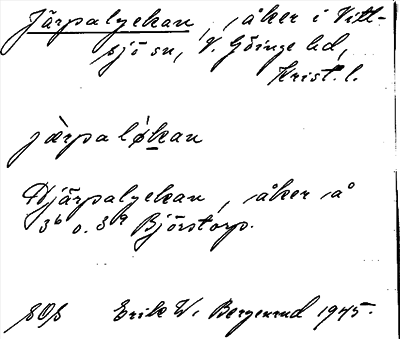 Järpalyckan, åker i Vitt-
sjö sn, V. Göinge hd,
Krist. l.
järpaløkan
Djärpalyckan, åker å
3b o. 3a Björstorp.
SOS Erik W. Bergenrud 1945.